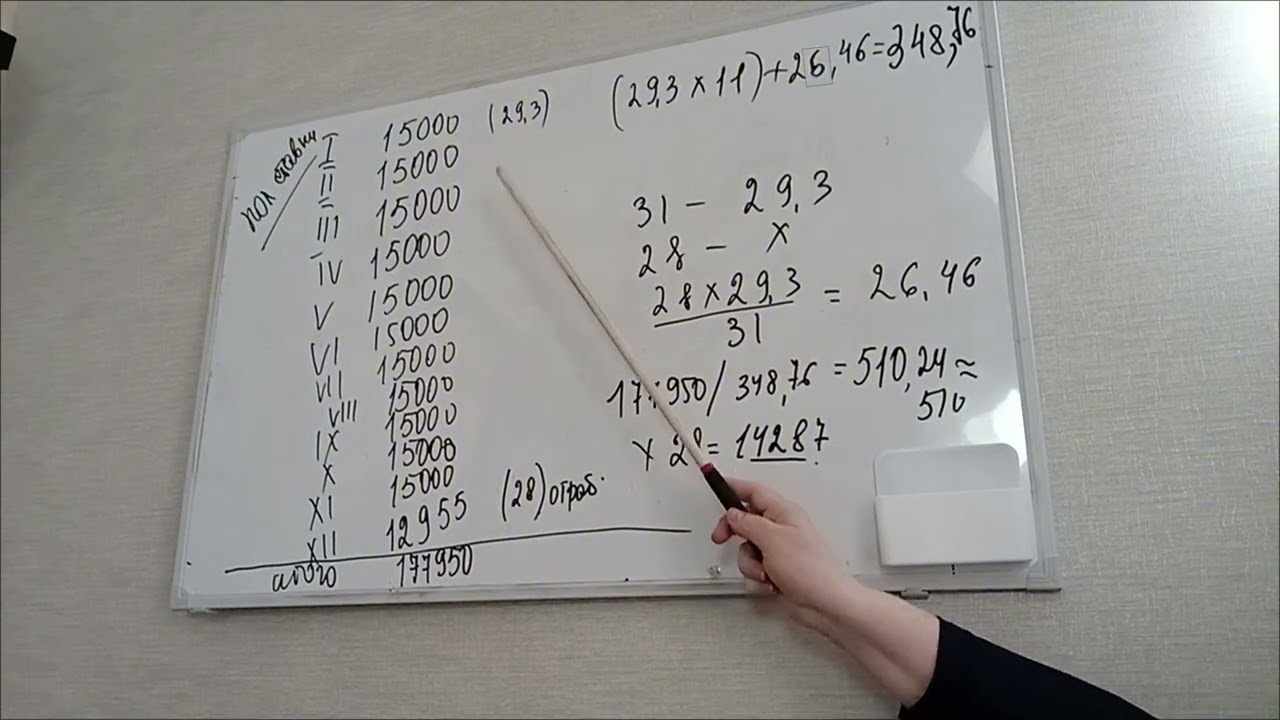 пол ставки
I 15000 (29,3)
II 15000
III 15000
IV 15000
V 15000
VI 15000
VII 15000
VIII 15000
IX 15000
X 15000
XI 15000
XII 12955 (28) отраб.
итого 177950
(29,3 x 11) + 26,46 = 348,76
31 - 29,3
28 - x
28 x 29,3
= 26,46
31
177950 / 348,76 = 510,24 ≈
510
x 28 = 14287.